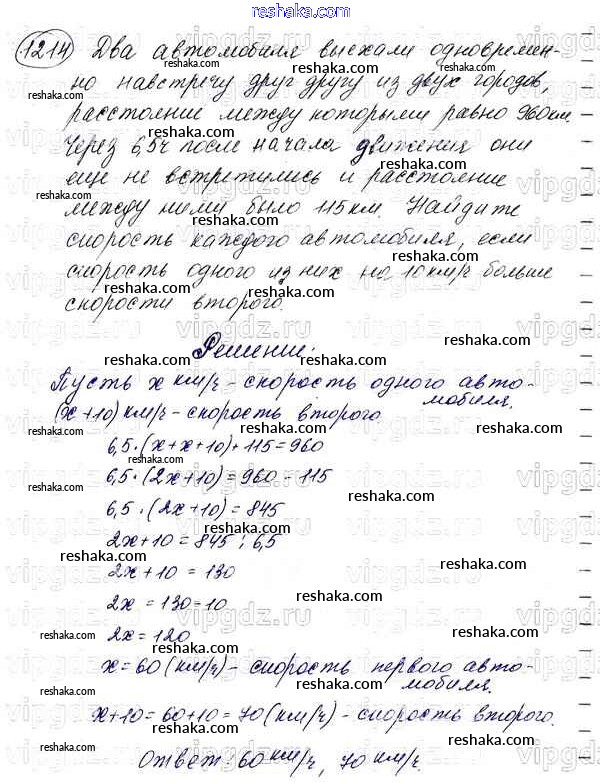 reshaka.com
1214 Два автомобиля выехали одновремен-
но навстречу друг другу из двух городов,
расстояние между которыми равно 960 км.
Через 6,5ч после начала движения они
еще не встретились и расстояние
между ними было 115 км. Найдите
скорость каждого автомобиля, если
скорость одного из них на 10 км/ч больше
скорости второго.
Решение:
Пусть x км/ч - скорость одного авто-
мобиля.
(x+10) км/ч - скорость второго
6,5·(x+x+10)+115=960
6,5·(2x+10)=960-115
6,5·(2x+10)=845
2x+10=845:6,5
2x+10=130
2x=130=10
2x=120
x=60 (км/ч) - скорость первого авто-
мобиля.
x+10=60+10=70 (км/ч) - скорость второго.
Ответ: 60 км/ч, 70 км/ч.